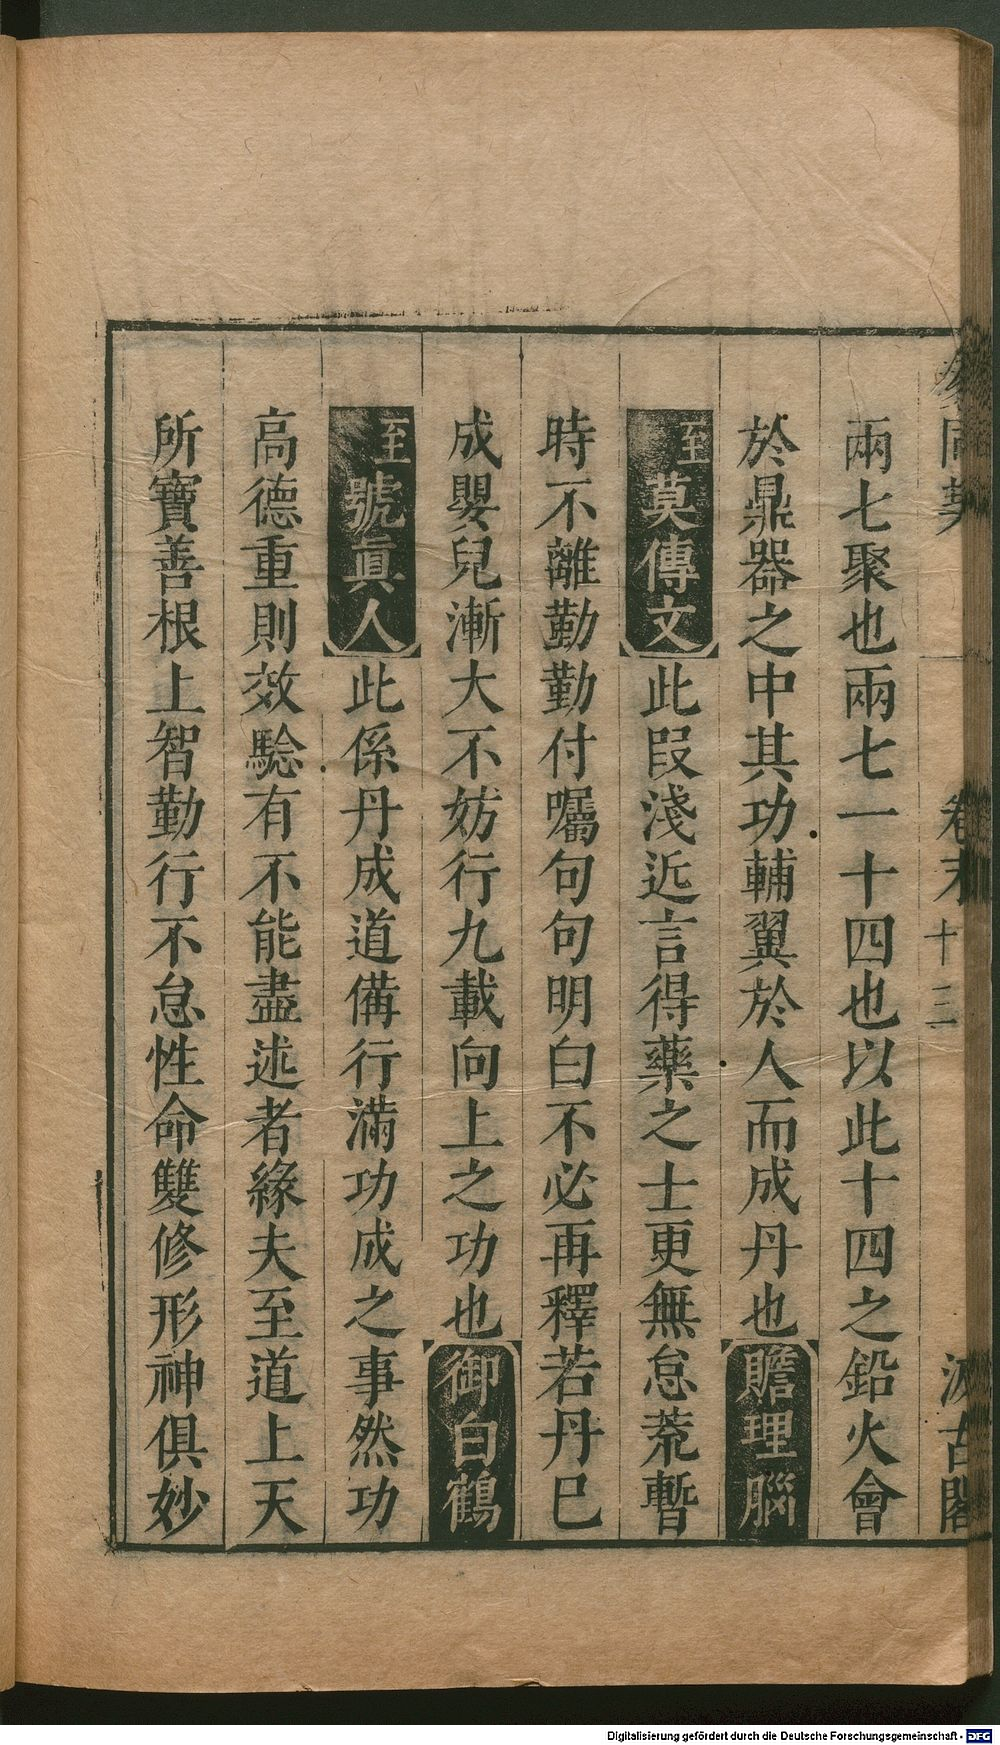 參同契 卷末 十三 汲古閣
兩七聚也兩七一十四也以此十四之鉛火會
於鼎器之中其功輔翼於人而成丹也贍理腦
至莫傳文此叚淺近言得藥之士更無怠荒暫
時不離勤勤付囑句句明白不必再釋若丹已
成嬰兒漸大不妨行九載向上之功也御白鶴
至號眞人此係丹成道備行滿功成之事然功
高德重則效驗有不能盡述者緣夫至道上天
所寶善根上智勤行不怠性命雙修形神俱妙
Digitalisierung gefördert durch die Deutsche Forschungsgemeinschaft - DFG